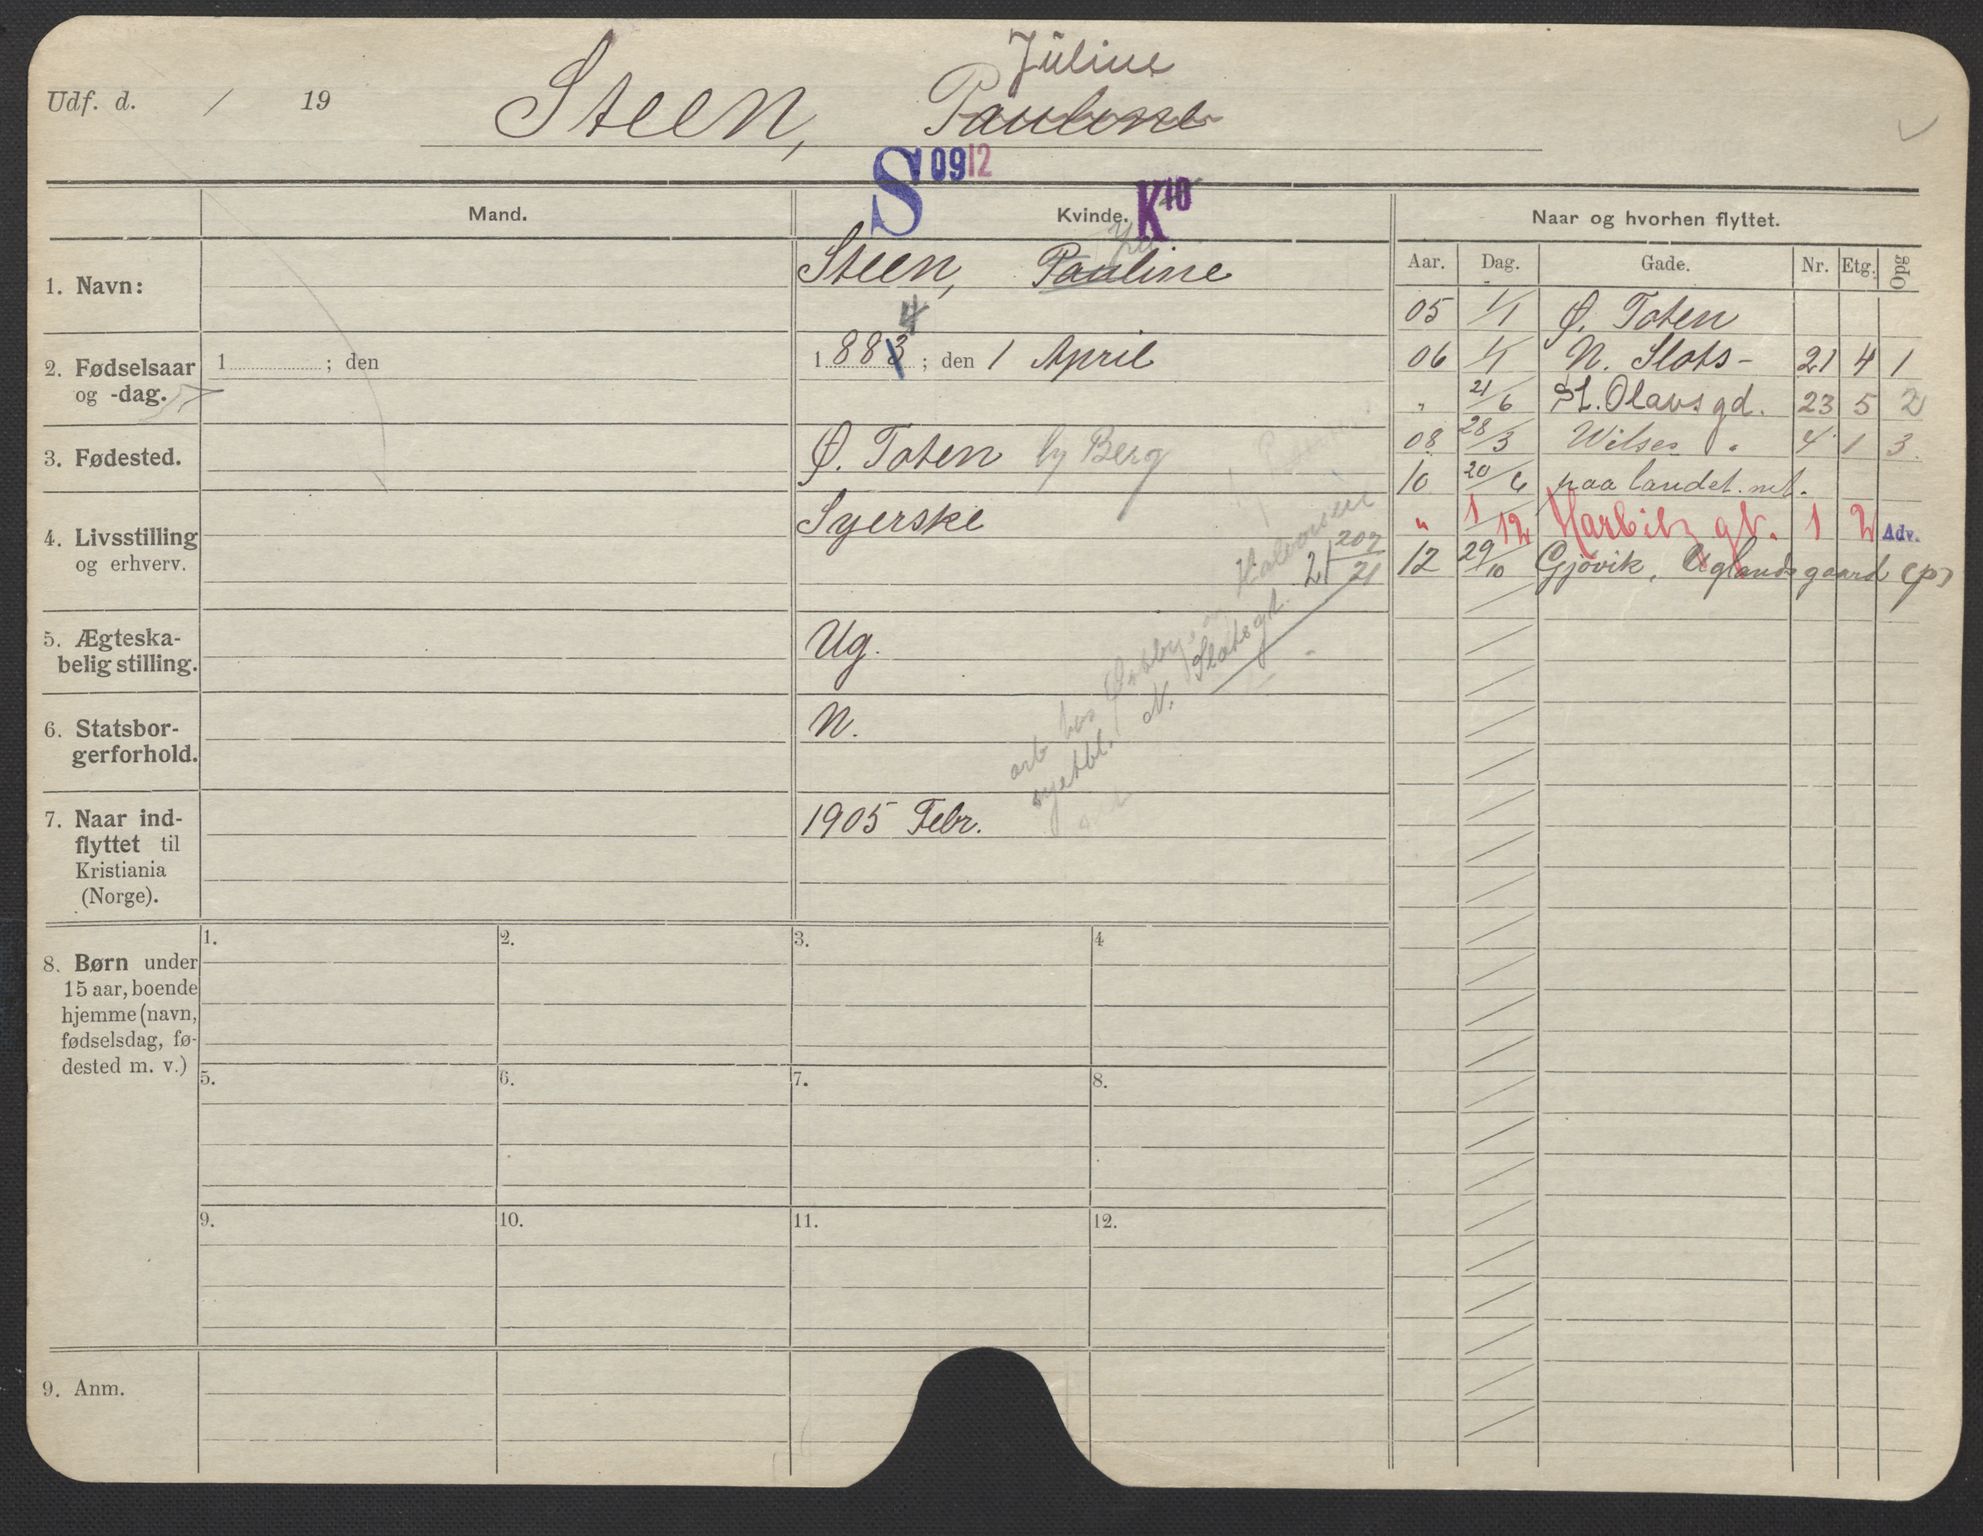 Udf. d. / 19
Steen, Pauline Juline
S 09 12
K 10
Mand. Kvinde. Naar og hvorhen flyttet.
Aar. Dag. Gade. Nr. Etg. Opg
1. Navn: Steen, Pauline
2. Fødselsaar og -dag. 1 ; den
1 8883 4 ; den 1 April
3. Fødested. Ø. Toten by Berg
4. Livsstilling og erhverv. Syerske
5. Ægteska-
belig stilling. Ug.
6. Statsbor-
gerforhold. N.
7. Naar ind-
flyttet til
Kristiania
(Norge). 1905 Febr.
arb hos Østbye Halvorsen
N. Slotsgt. 21 207/21
05 1/1 Ø. Toten
06 1/1 N. Slots- 21 4 1
" 21/6 St. Olavs gd. 23 5 2
08 28/3 Wilses " 4 1 3
10 20/6 paa landet
" 1/12 Harbitz gt. 1 2 Adv.
12 29/10 Gjøvik, Uglandsgaard (p)
8. Børn under
15 aar, boende
hjemme (navn,
fødselsdag, fø-
dested m. v.)
1. 2. 3. 4
5. 6. 7. 8.
9. 10. 11. 12.
9. Anm.